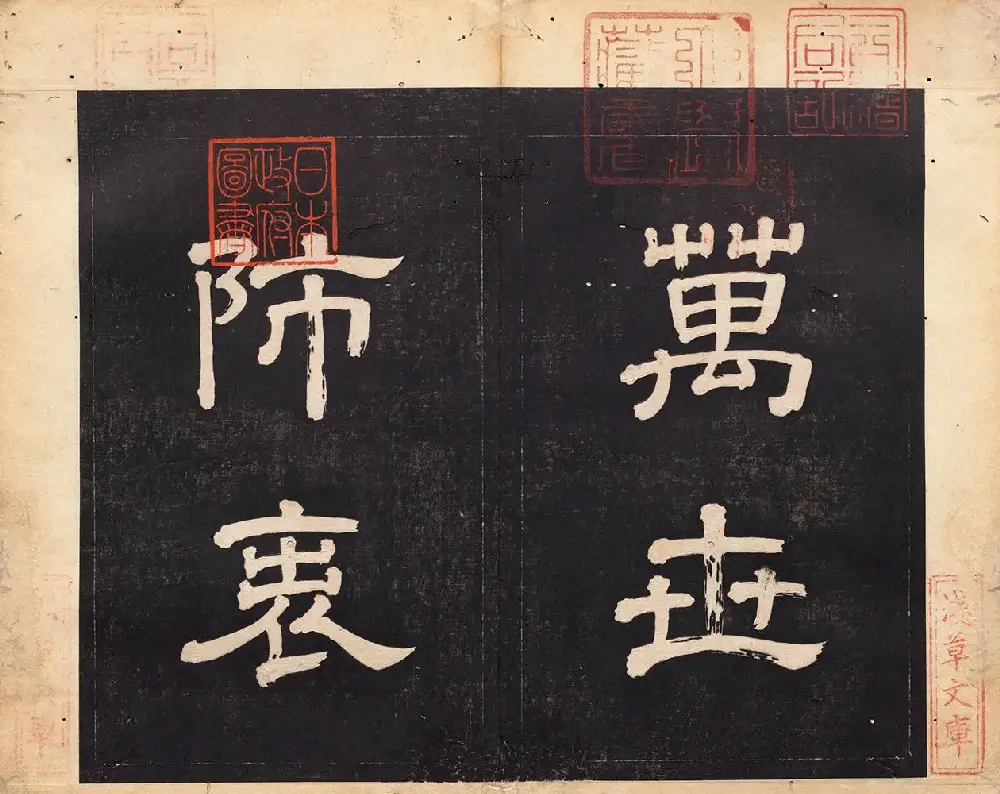 萬世
師表
日本
政府
圖書
淺草文庫